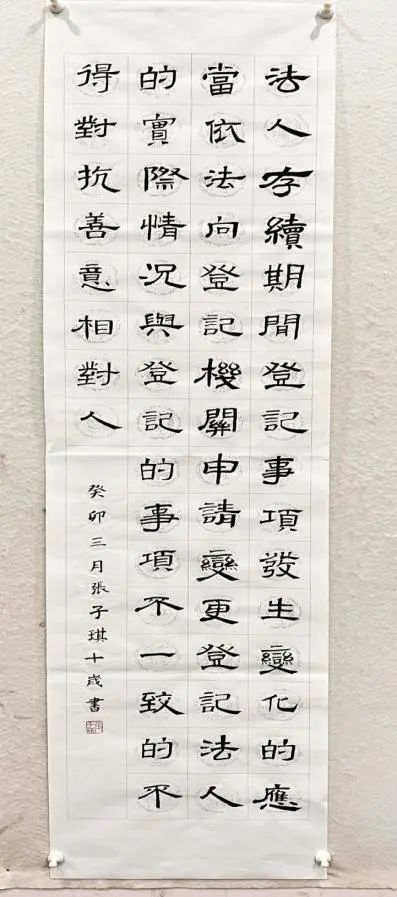 法人存續期間登記事項發生變化的應
當依法向登記機關申請變更登記法人
的實際情況與登記的事項不一致的不
得對抗善意相對人
癸卯三月張子琪十歲書